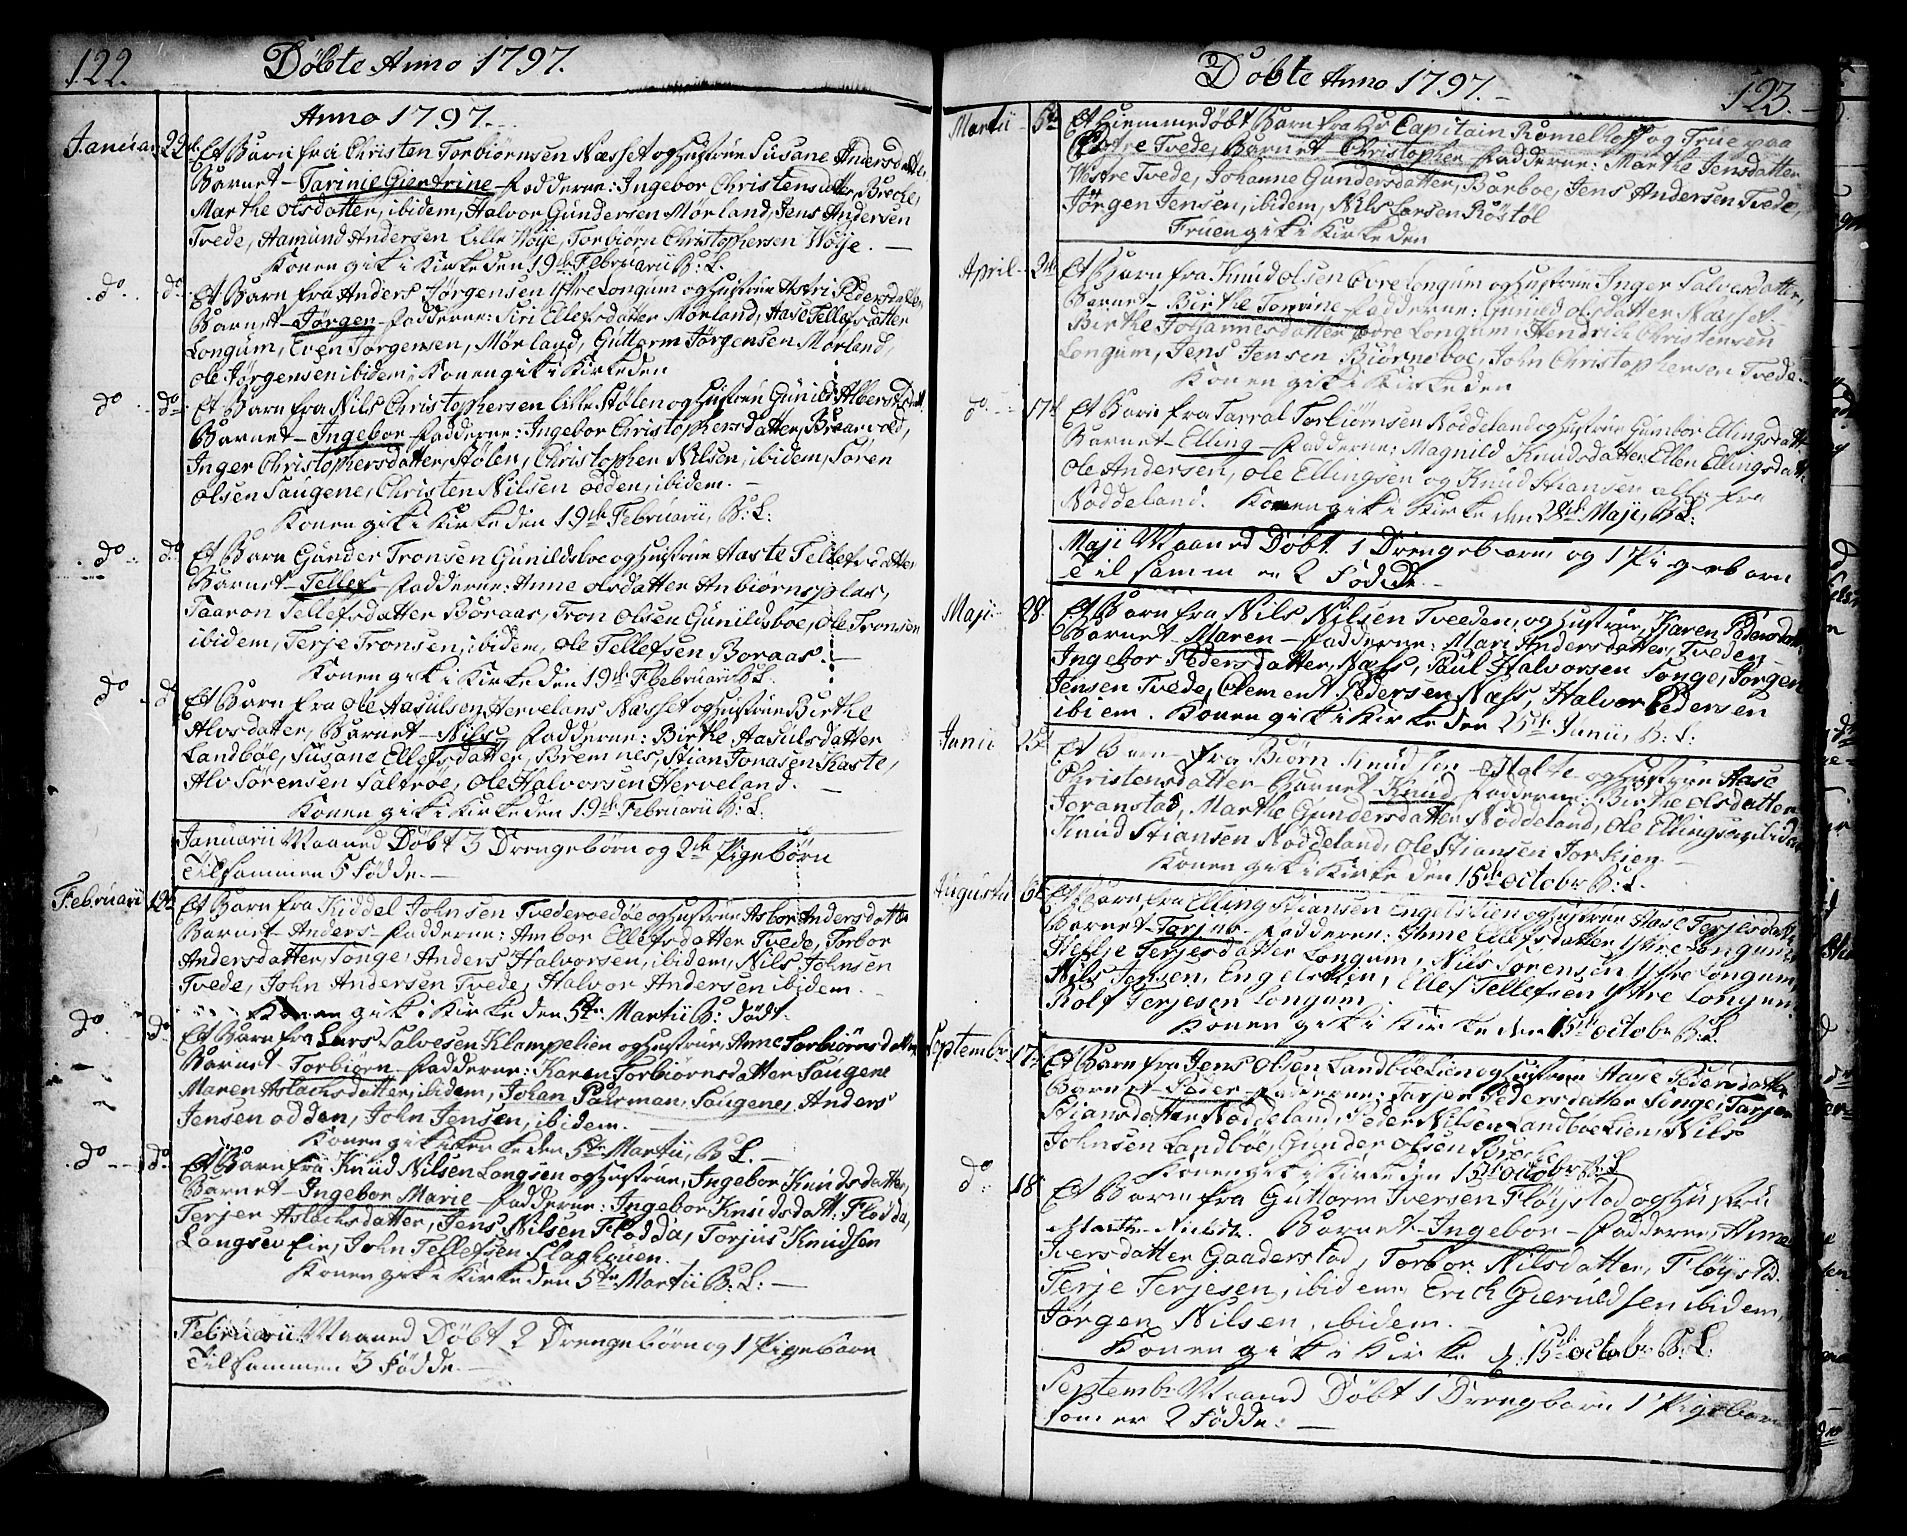 122. Döbte Anno 1797.
Anno 1797.
Januar 22de Et Barn fra Christen Torbiörnsen Næsset og Hustrue Susane Andersdatter,
Barnet - Tarine Giertrine - Fadderne: Ingebor Christensdatter, Breche,
Marthe Olsdatter, ibidem, Halvor Gundersen Mörland, Jens Andersen
Tvede, Aamund Andersen Lille Woije, Torbiörn Christophersen Woije. -
Konen gik i Kirke den 19de Februarii B: L.
do do Et Barn fra Anders Jörgensen Ystre Longum og Hustrue Astri Pedersdatter,
Barnet - Jörgen - Fadderne: Siri Ellefsdatter Mörland, Aase Tellefsdatter
Longum, Even Jörgensen, Mörland, Guttorm Jörgensen Mörland,
Ole Jörgensen ibidem, Konen gik i Kirke den
do do Et Barn fra Nils Christophersen Lille Stölen og Hustrue Gunild Albertsdatt.
Barnet - Ingebor - Fadderne: Ingebor Christophersdatter, Breacvold,
Inger Christophersdatter, Stölen, Christopher Nilsen, ibidem, Sören
Olsen Saugene, Christen Nilsen Odden, ibidem. -
Konen gik i Kirke den 19de Februarii, B: L:
do do Et Barn Gunder Tronsen Gunildsboe og Hustrue Aaste Tellefsdatter
Barnet - Tellef - Fadderne: Anne Olsdatter Anbiörnsplas,
Taaron Tellefsdatter Boraas, Tron Olsen Gunildsboe, Ole Tronsen
ibidem, Terje Tronsen, ibidem, Ole Tellefsen Boraas. -
Konen gik i Kirke den 19de Februarii B: L.
do d Et Barn fra Ole Aasulsen Hervelans Næsset og Hustrue Birthe
Alvsdatter, Barnet - Nils, Fadderne: Birthe Aasulsdatter
Landböe, Susane Ellefsdatter, Bremnes, Stian Jonasen Kaste,
Alv Sörensen Saltröe, Ole Halvorsen Herveland. -
Konen gik i Kirke den 19de Februarii B: L.
Januarii Maaned Döbt 3 Drengebörn og 2de Pigebörn
Tilsammen 5 Födde. -
Februarii 12te Et Barn fra Kiddel Johnsen Tvedevedöe og Hustrue Asbor Andersdatter
Barnet - Anders - Fadderne: Ambor Ellefsdatter Tvede, Torbor
Andersdatter, Songe, Anders Halvorsen, ibidem, Nils Johnsen
Tvede, John Andersen Tvede, Halvor Andersen ibidem. -
Konen gik i Kirke den 5te Martii B: Födt.
do do Et Barn fra Lars Salvesen Klampelien og Hustrue, Anne Torbiörnsdatter
Barnet Torbiörn - Fadderne: Karen Torbiörnsdatter Saugene
Maren Aslachsdatter, ibidem, Johan Paurman, Saugene, Anders
Jensen Odden, John Jensen, ibidem. -
Konen gik i Kirke den 5te Martii, B: L. -
do do Et Barn fra Knud Nilsen Langsen og Hustrue, Ingebor Knudsdatter,
Barnet - Ingebor Marie - Fadderne: Ingebor Knudsdatt: Flodda,
Terjer Aslachsdatter, Jens Nilsen Flodda, Torjus Knudsen
Langsev Eie, John Tellefsen Flaghouen. -
Konen gik i Kirke den 5te Martii B: L: -
Februarii Maaned Döbt 2 Drengebörn og 1 Pigebarn
Tilsammen 3 Födde. -
Döbte Anno 1797. - 123. -
Martii 5te Et Hiemmedöbt Barn fra Hr Capitain Romelhoff og Frue paa
Westre Tvede, Barnet Christopher Fadderne: Marthe Jensdatter
Westre Tvede, Johanne Gundersdatter, Barboe, Jens Andersen Tvede,
Jörgen Jensen, ibidem, Nils Larsen Röstöl
Fruen gik i Kirke den
April 2de Et Barn fra Knud Olsen Övre Longum og Hustrue Inger Salvesdatter,
Barnet - Birthe Tomine Fadderne: Gunild Olsdatter Næsset
Birthe Johannesdatter Övre Longum, Hendrich Christensen
Longum, Jens Jensen Biörneboe, John Christophersen Tvede. -
Konen gik i Kirke den
do 17de Et Barn fra Tarral Torbiörnsen Nöddeland og Hustrue Gunbor Ellingsdatt:
Barnet - Elling - Fadderne: Magnild Knudsdatter, Ellen Ellingsdatt:
Ole Andersen, Ole Ellingsen og Knud Stiansen alle fra
Nöddeland. Konen gik i Kirke den 28de Maji, B: L:
Maji Maaned Döbt 1 Drengebarn og 1 Pigebarn
Tilsammen 2 Födde. -
Maji 28. Et Barn fra Nils Nilsen Tveden, og Hustrue, Karen Pedersdatt:
Barnet - Maren - Fadderne: Mari Andersdatter, Tveden -
Ingebor Pedersdatter, Næss, Paul Halvorsen Songe, Jörgen
Jensen Tvede, Clement Pedersen Næss, Halvor Pedersen
ibiem. Konen gik i Kirke den 25de Junii, B: L:
Junii 25de Et Barn fra Biörn Knudsen Holte og Hustrue Aase
Christensdatter Barnet Knud Fadderne: Birthe Olsdatter
Joranstad, Marthe Gundersdatter, Nöddeland, Ole Ellingsen ibidem
Knud Stiansen Nöddeland, Ole Stiansen Torkien. -
Konen gik i Kirke den 15de Octobr B: L.
Augustii 6te Et Barn fra Elling Stiansen Engelstien og Hustrue Aase Terjesdatter
Barnet - Tarjer - Fadderne: Anne Ellefsdatter Ystre Longum,
Helje Terjesdatter Longum, Nils Sörensen Ystre Longum,
Nils Torsen, Engelstien, Ellef Tellefsen Ystre Longum,
Rolf Terjesen Longum.
Konen gik i Kirke den 15de Octobr B: L.
Septembr 17de Et Barn fra Jens Olsen Landböe Lien og Hustrue Aase Pedersdatter
Barnet - Peder - Fadderne: Tarjer Pedersdatter Singe, Tarjer
Stiansdatter Nöddeland, Peder Nilsen Landböe Lien, Nils
Johnsen Landböe, Gunder Olsen Bierke.
Konen gik i Kirke den 15de Octobr B: L
do 18 Et Barn fra Guttorm Iversen Flöystad og Hustrue
Barnet - Ingebor - Fadderne, Anne
Iversdatter Gaaderstad, Torbor Nilsdatter, Flöystad.
Terje Terjesen, ibidem, Erich Gieruldsen ibidem,
Jörgen Nilsen, ibidem. -
Konen gik i Kirke d: 15de Octobr B: L:
Septembr Maaned Döbt 1 Drengbarn 1 Pigebarn
som er 2 Födde: -